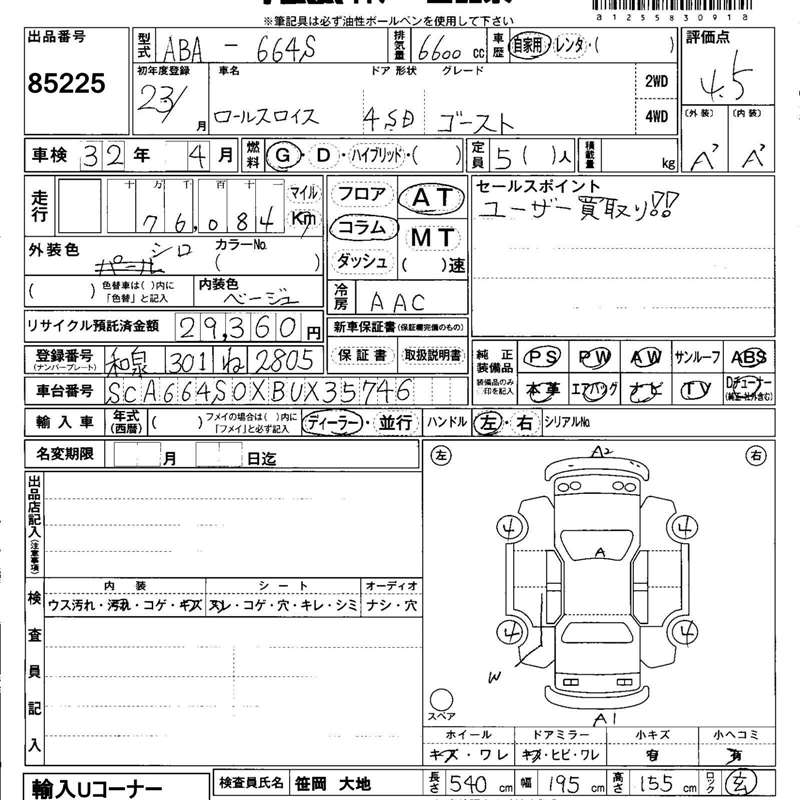 ※筆記具は必ず油性ボールペンを使用して下さい
a1255830918
出品番号 型式 ABA - 664S 排気量 6600 cc 車歴 自家用・レンタ・( ) 評価点
85225 4.5
初年度登録 車名 ドア 形状 グレード 2WD
23/ 月 ロールスロイス 4 SD ゴースト 4WD
(外装) (内装)
車検 32年 4月 燃料 G・D・ハイブリッド・( ) 定員 5( )人 積載量 kg A A
走行 十 万 千 百 十 一 マイル フロア AT セールスポイント
76,084 Km コラム MT ユーザー買取り!!
外装色 パール シロ カラーNo. ( ) ダッシュ ( )速
( ) 色替車は( )内に「色替」と記入 内装色 ベージュ 冷房 AAC
リサイクル預託済金額 29,360円 新車保証書(保証欄完備のもの)
登録番号 (ナンバープレート) 和泉 301 ね 2805 保証書 取扱説明書 純正装備品 PS PW AW サンルーフ ABS
車台番号 SCA664S0XBUX35746 装備品のみ○印を記入 本革 エアバッグ ナビ TV Dチューナー (純正社外含む)
輸入車 年式(西暦) ( ) フメイの場合は( )内に「フメイ」と必ず記入 ディーラー・並行 ハンドル 左・右 シリアルNo.
名変期限 月 日迄
左 右
A2
出品店記入(注意事項)
4 4
A
検査員記入
内装 シート オーディオ
ウス汚れ・汚れ・コゲ・キズ スレ・コゲ・穴・キレ・シミ ナシ・穴
4 4
W
スペア A1
ホイール ドアミラー 小キズ 小ヘコミ
キズ・ワレ キズ・ヒビ・ワレ 有 有
輸入Uコーナー 検査員氏名 笹岡 大地 長さ 540 cm 幅 195 cm 高さ 155 cm ロック 玄